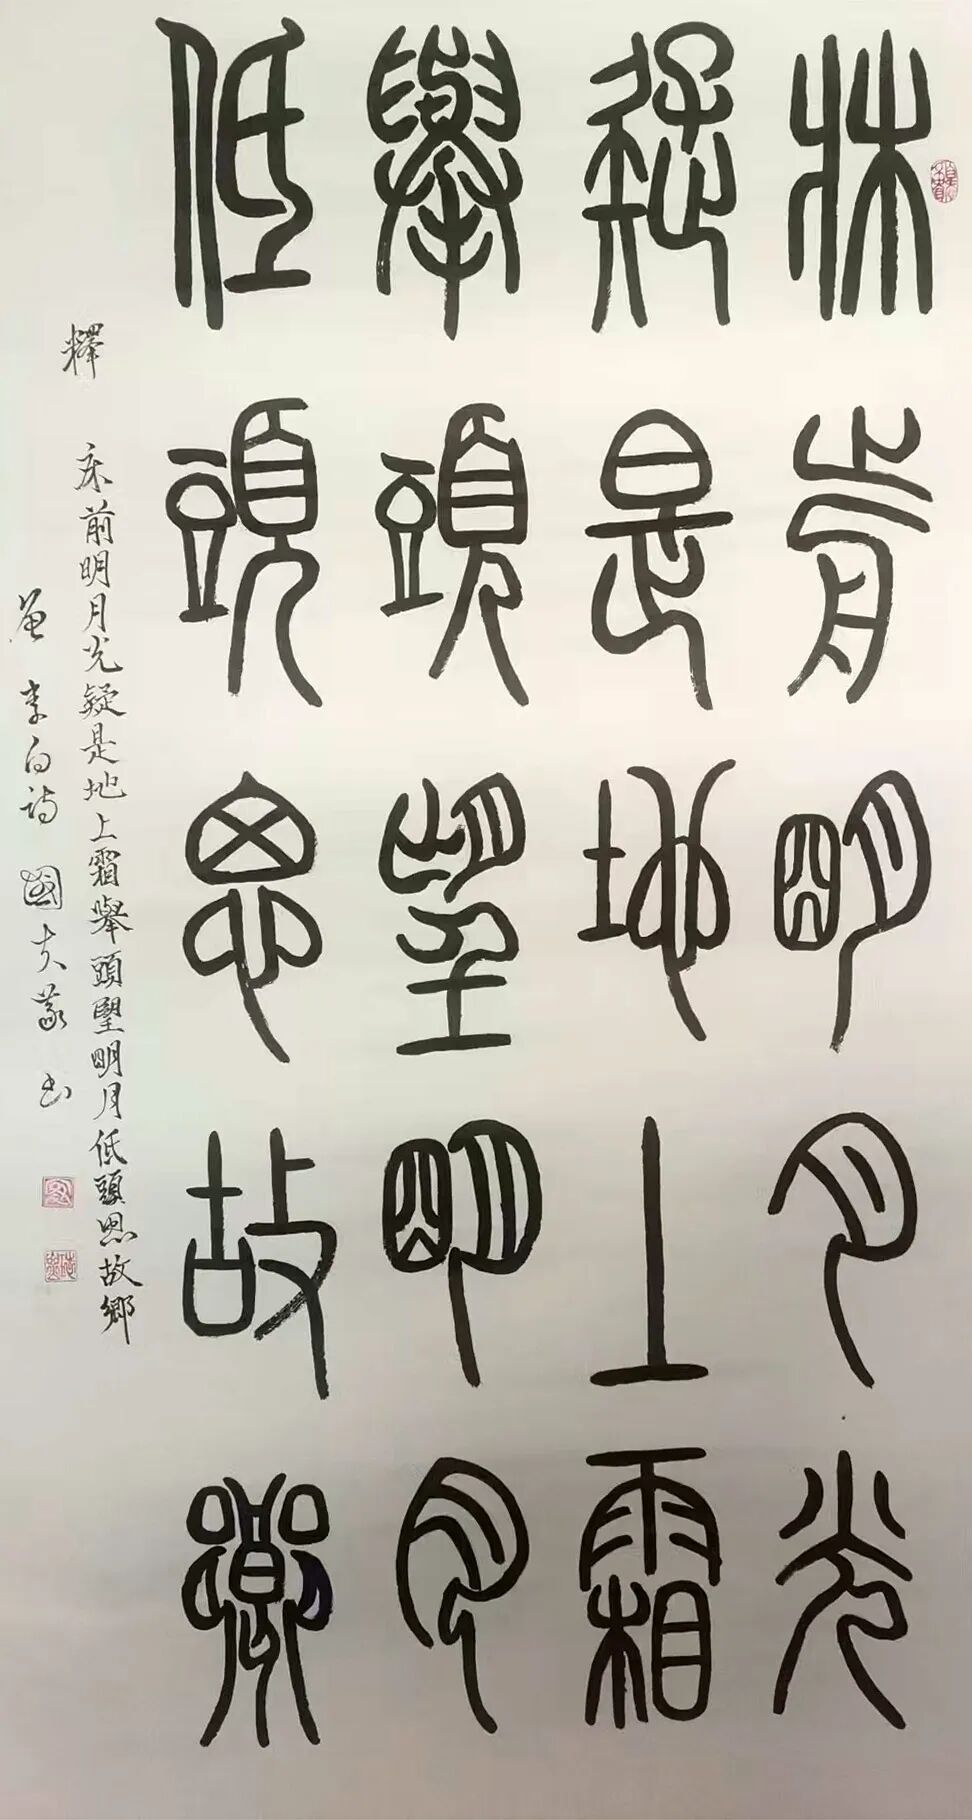 牀前明月光
疑是地上霜
舉頭望明月
低頭思故鄉
釋 床前明月光疑是地上霜舉頭望明月低頭思故鄉
李白詩 國夫 書